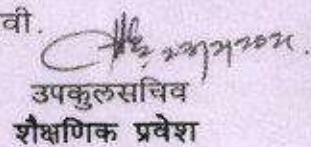 वी.
उपकुलसचिव
शैक्षणिक प्रवेश